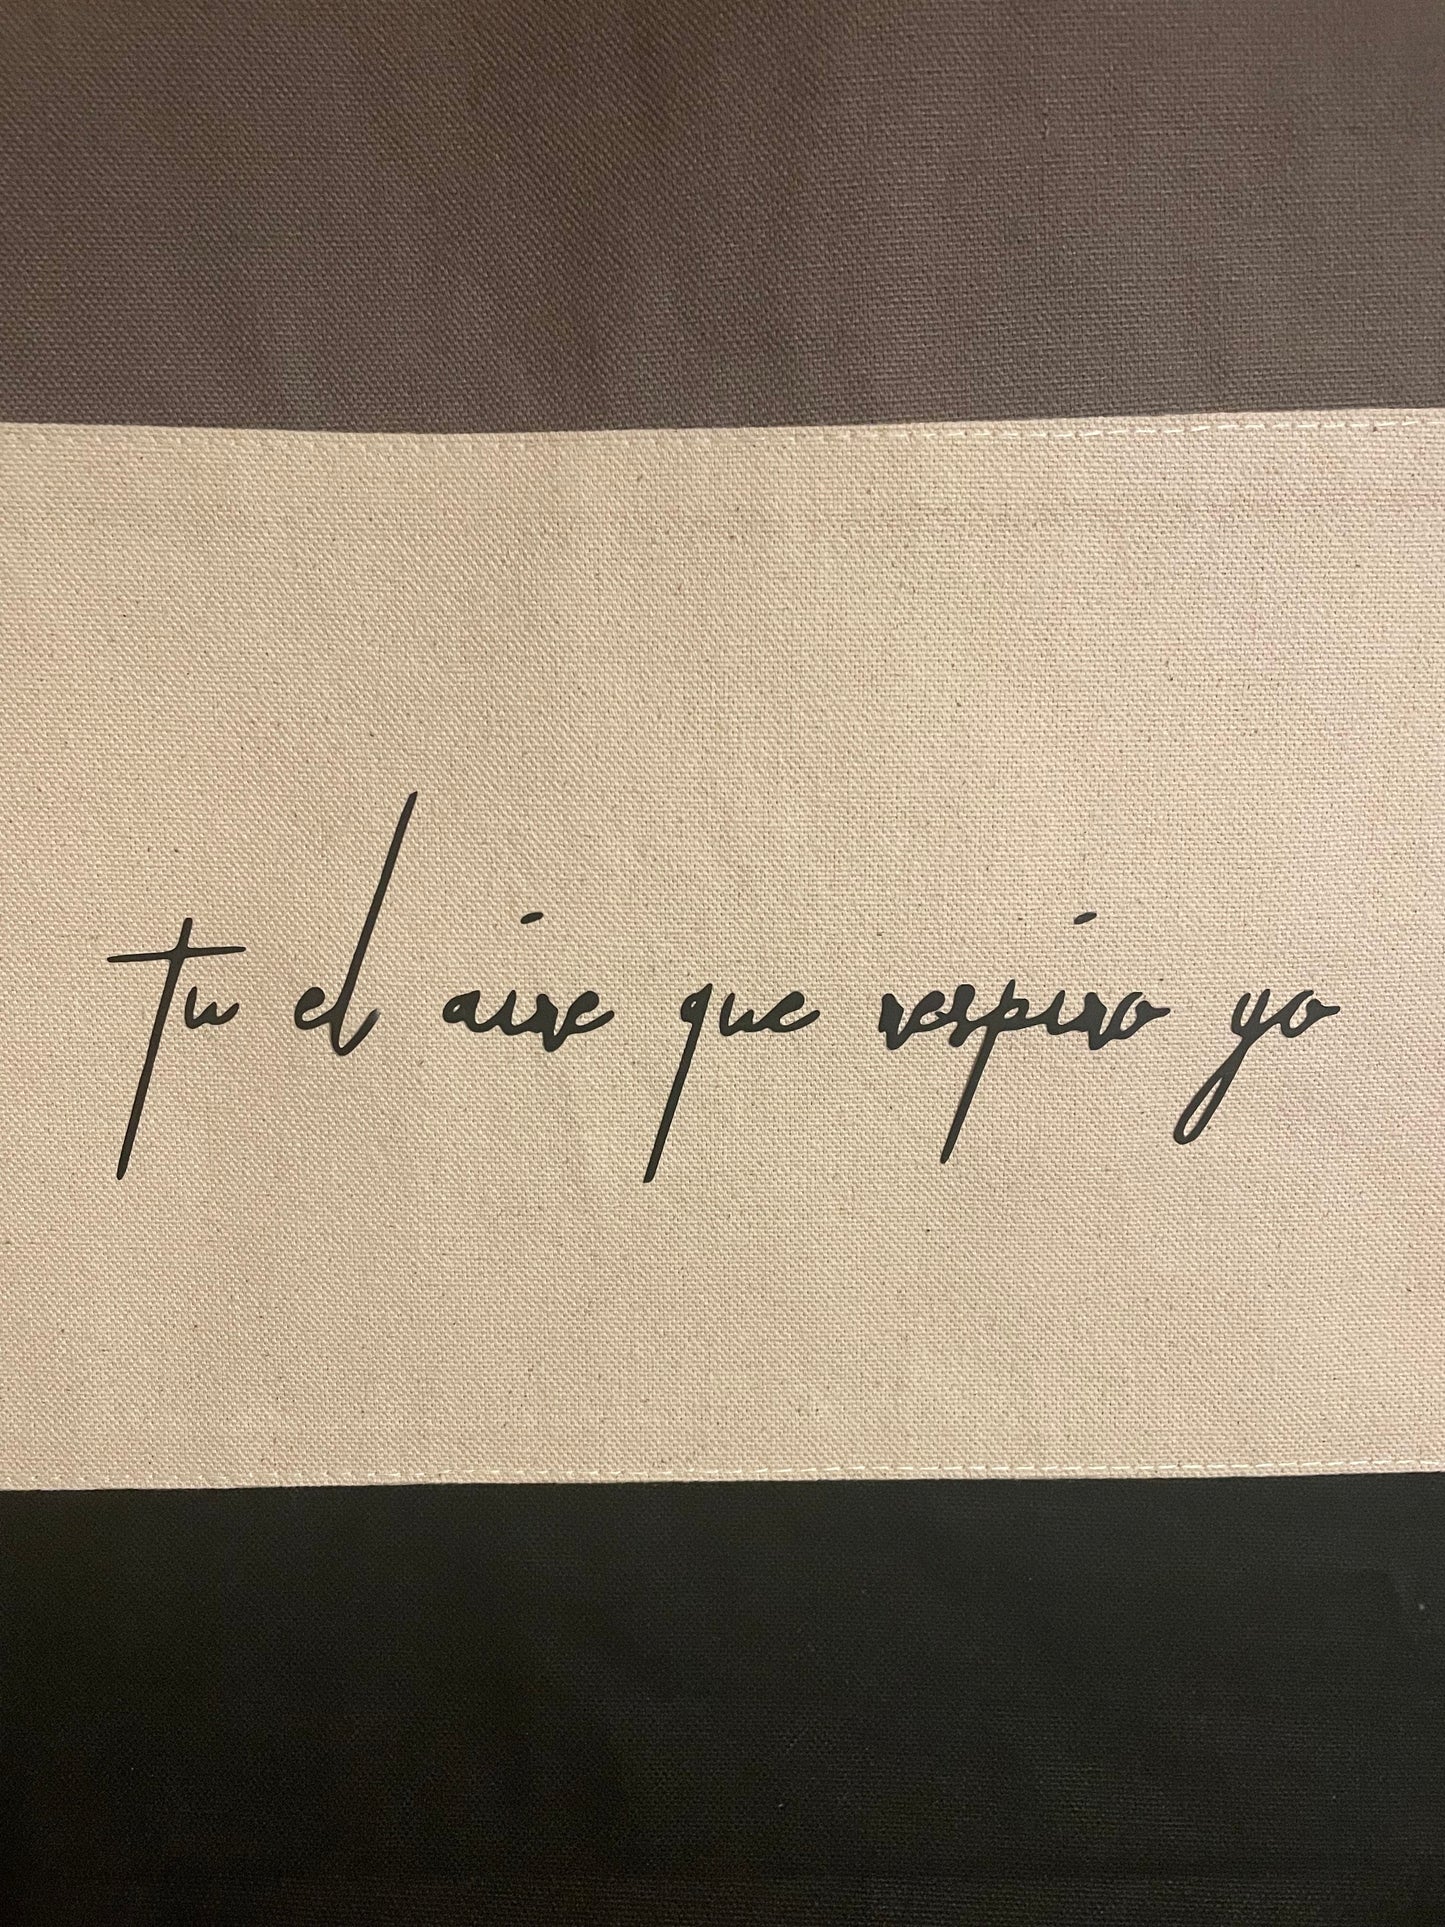 tu el aire que respiro yo